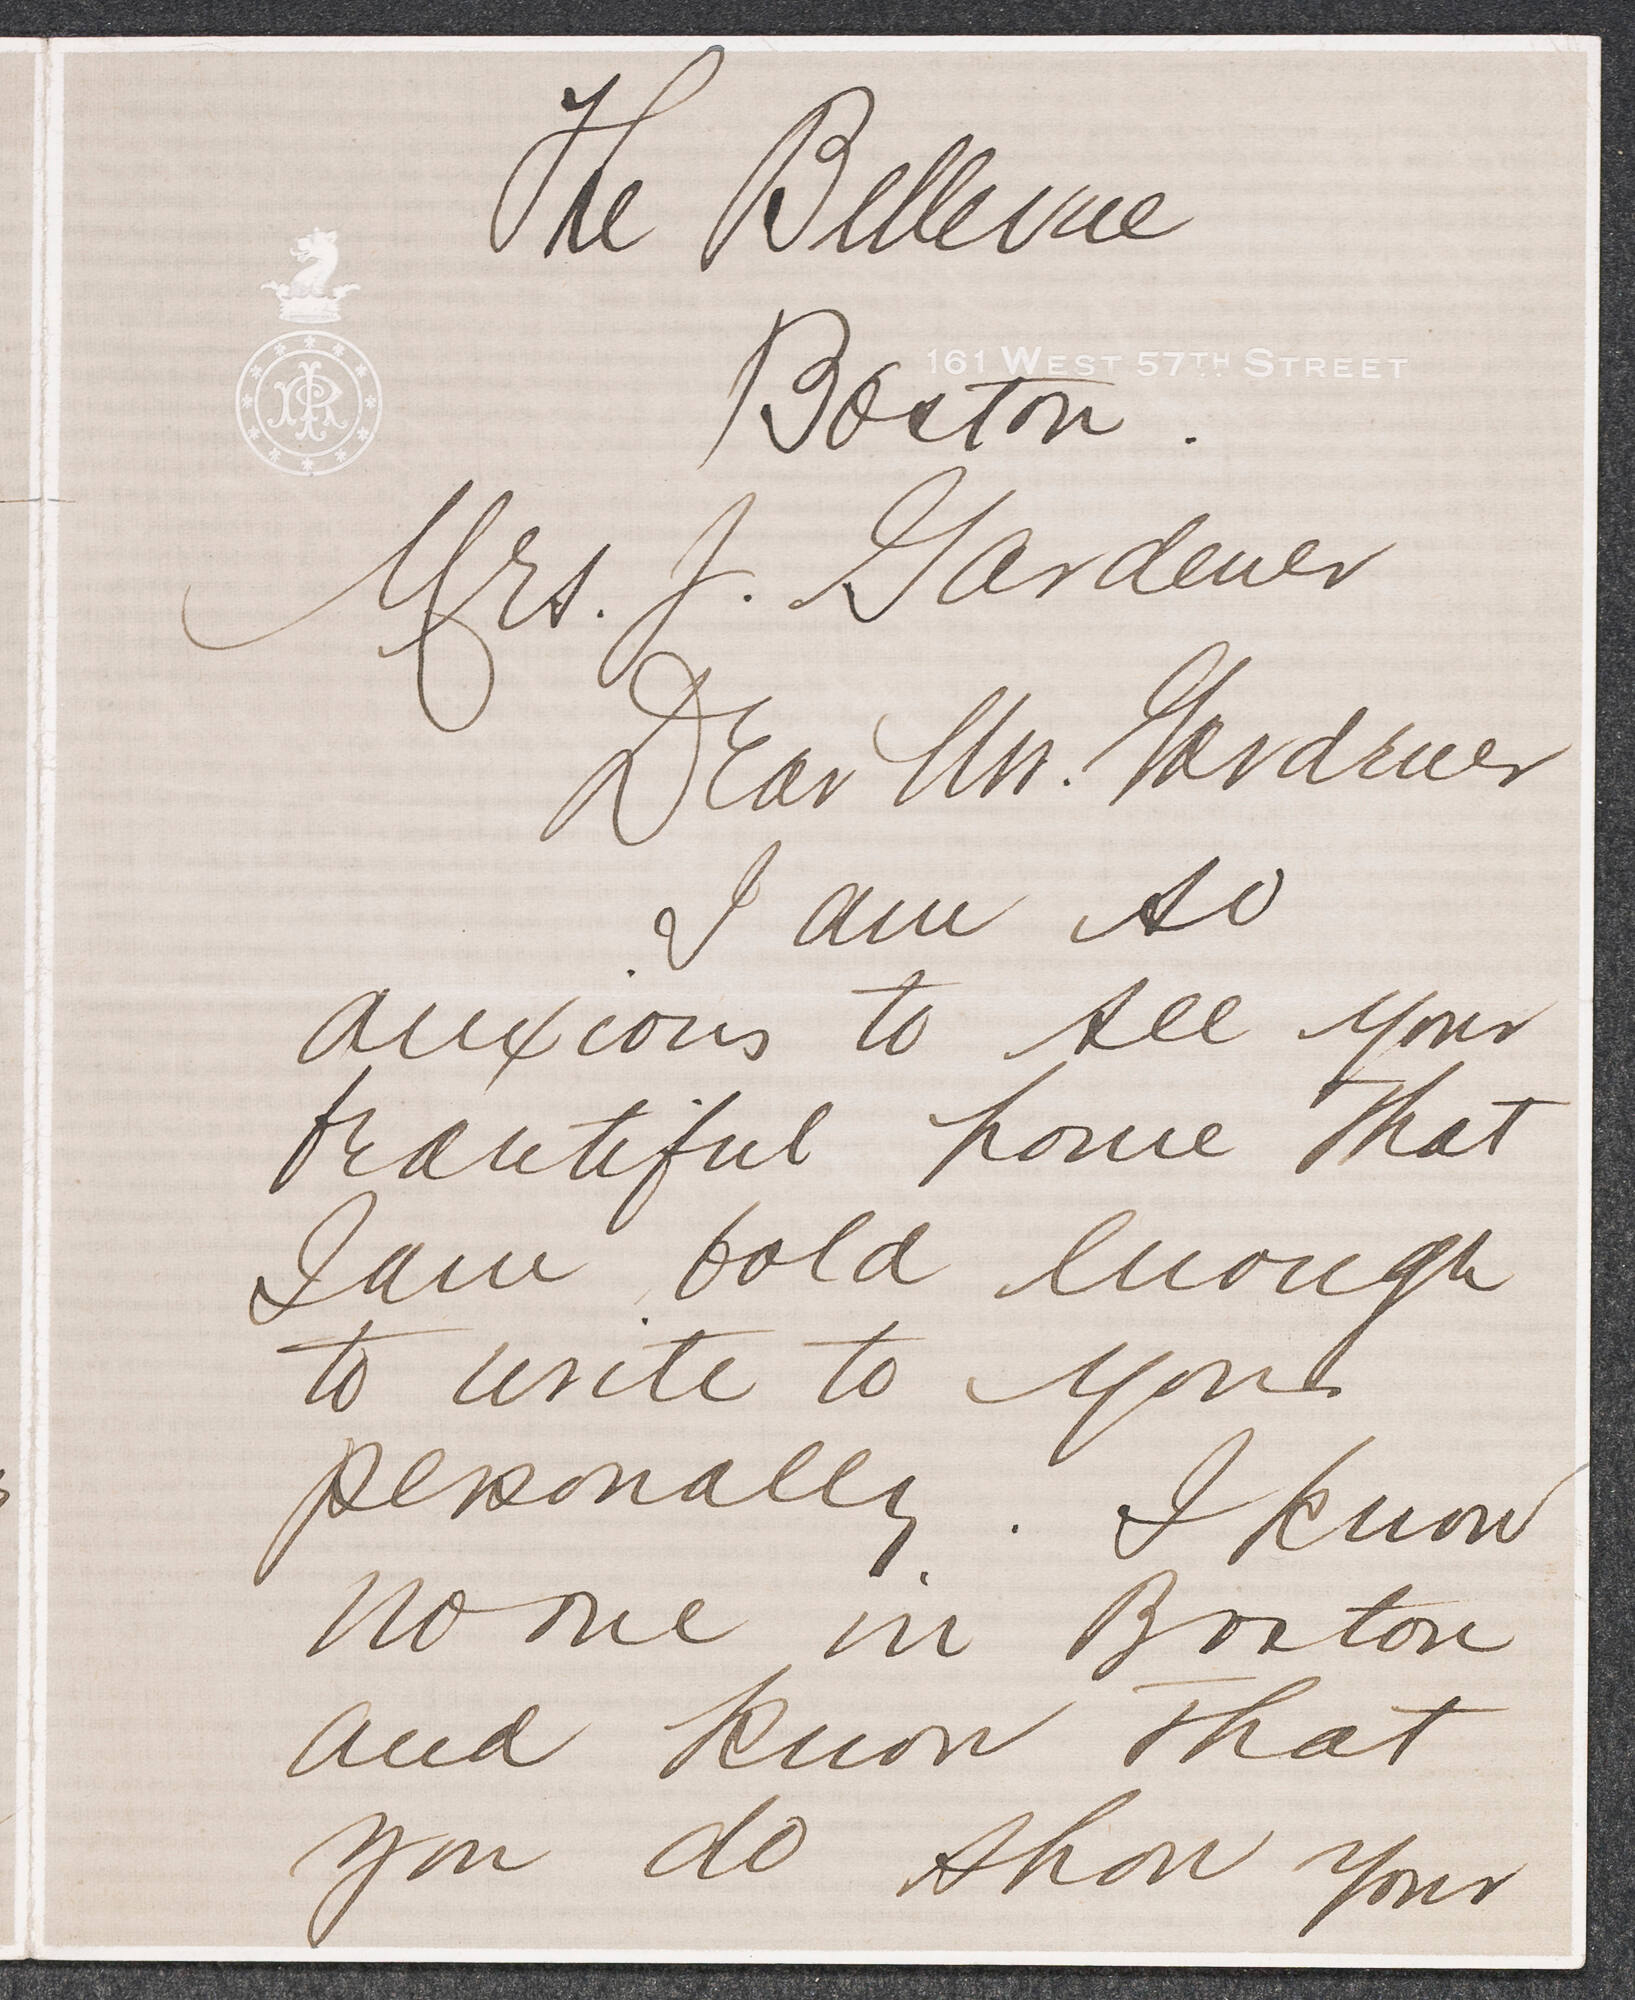 The Bellevue
161 WEST 57TH STREET
Boston.
Mrs. J. Gardener
Dear Mrs. Gardener
I am so
anxious to see your
beautiful home that
I am bold enough
to write to you
personally. I know
no one in Boston
and know that
you do show your